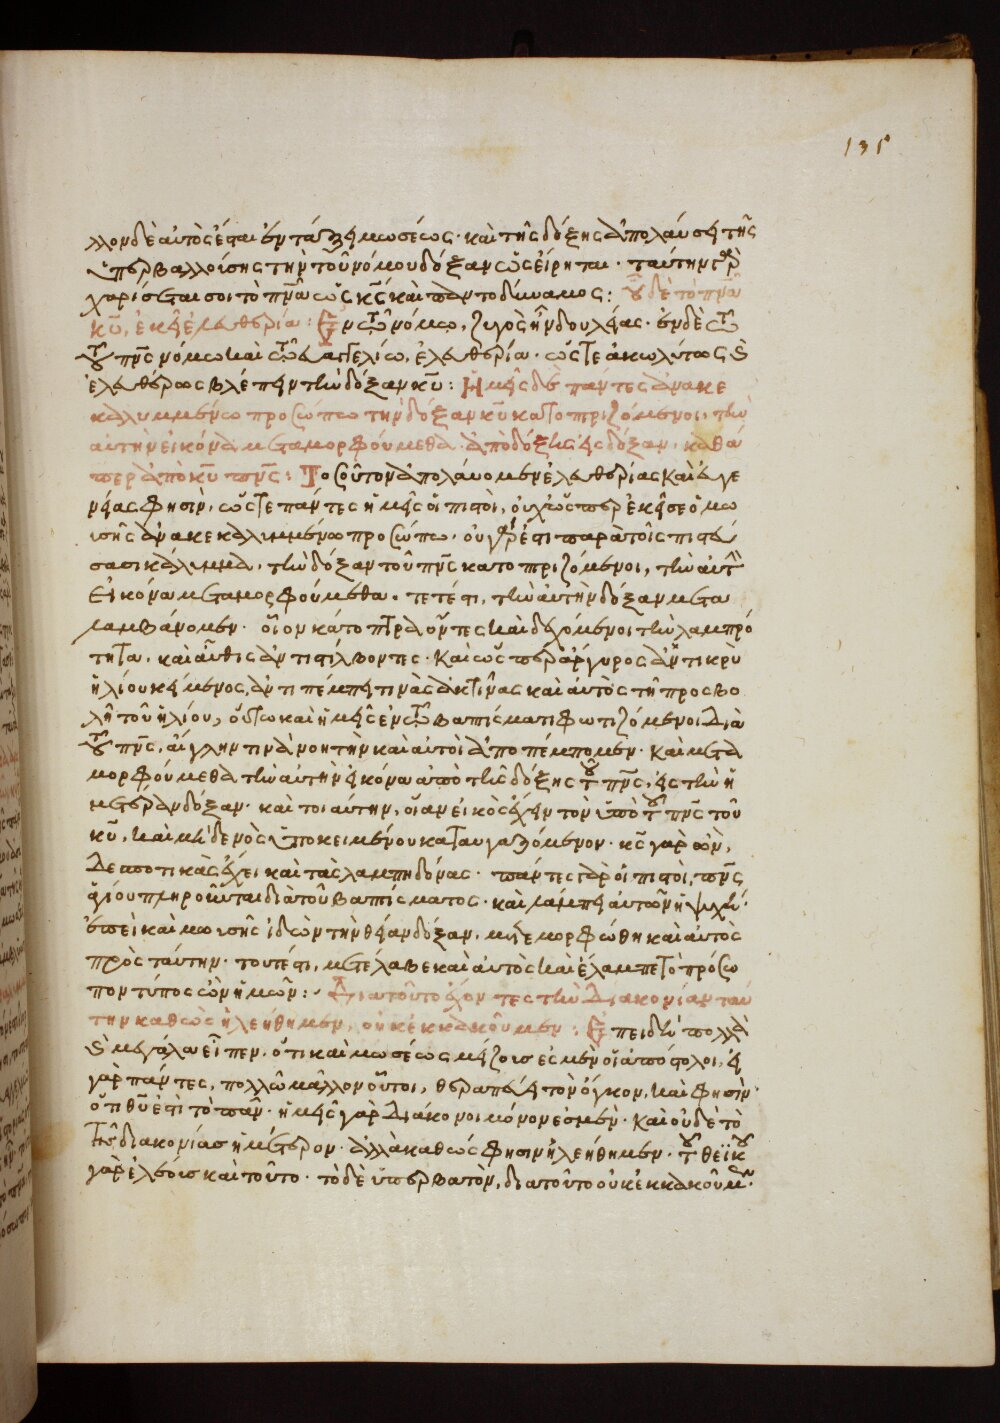 135
λλον δὲ αὐτὸς ἔσται ἐν τάξει μωσέως· καὶ τῆς δόξης ἀπολαύσει τῆς
ὑπερβαλλούσης τὴν τοῦ νόμου δόξαν ὡς εἴρηται· ταύτην γὰρ
χαρίσεταί σοι τὸ πνᾶ ὡς κς καὶ παντοδύναμος: οὗ δὲ τὸ πνᾶ
κυ, ἐκεῖ ἐλευθερία: Ἐν τῷ νόμω, ζυγὸς ἦν δουλείας· ἐν δὲ τῷ
τοῦ πνς νόμω καὶ τῷ εὐαγγελίω, ἐλευθερία· ὥστε ἀκωλύτως καὶ
ἐλευθέρως βλέπειν τὴν δόξαν κυ: Ἡμεῖς δὲ πάντες ἀνακε
καλυμμένω προσώπω τὴν δόξαν κυ κατοπτριζόμενοι, τὴν
αὐτὴν εἰκόνα μεταμορφούμεθα ἀπὸ δόξης εἰς δόξαν, καθά
περ ἀπὸ κυ πνς: Τοσοῦτον ἀπολάυομεν ἐλευθερίας καὶ ἐυγε
νείας φησὶν, ὥστε πάντες ἡμεῖς οἱ πιστοὶ, οὐχ ὥσπερ ἐκεῖσε ὁ μω
ισῆς ἀνακεκαλυμμένω προσώπω· οὐ γὰρ ἔστι παρὰ τοῖς πιστεύ
σασι κάλυμμα, τὴν δόξαν τοῦ πνς κατοπτριζόμενοι, τὴν αὐτὴν
εἰκόνα μεταμορφούμεθα· τετέστι, τὴν αὐτὴν δόξαν μετα
λαμβάνομεν· οἷον κάτοπτρα ὄντες καὶ δεχόμενοι τὴν λαμπρό
τητα, καὶ αὖθις ἀντιστίλβοντες· Καὶ ὥσπερ ἄργυρος ἄντικρὺ
ἡλίου κείμενος, ἀντιπέμπει τινὰς ἀκτῖνας καὶ αὐτὸς τῇ προσβο
λῇ τοῦ ἡλίου, οὕτω καὶ ἡμεῖς ἐν τῷ βαπτίσματι φωτιζόμενοι διὰ
τοῦ πνς, αἴγλην τινὰ νοητὴν καὶ αὐτοὶ ἀποπέμπομεν· Καὶ μετα
μορφούμεθα τὴν αὐτὴν εἰκόνα ἀπὸ τῆς δόξης τοῦ πνς, εἰς τὴν ἡ
μετέραν δόξαν· καὶ τοιαύτην, οἵαν εἰκὸς ἔχειν τὸν ὑπὸ τοῦ πνς τοῦ
κυ, καὶ μὴδενὸς ὑποκειμένου καταυγαζόμενον· κς γὰρ ὢν,
δεσποτικὰς ἔχει καὶ τὰς λαμπηδόνας· πάντες γὰρ οἱ πιστοὶ, πνς
ἁγίου πληροῦνται διὰ τοῦ βαπτίσματος· καὶ λάμπει αὐτῶν ἡ ψυχή·
ἐπεὶ καὶ μωισῆς ἰδὼν τὴν θείαν δόξαν, μετεμορφώθη καὶ αὐτὸς
πρὸς ταύτην· τουτέστι, μετέλαβε καὶ αὐτὸς καὶ ἔλαμπε τὸ πρόσω
πον τύπος ὢν ἡμῶν: Διατοῦτο ἔχοντες τὴν διακονίαν ταύ
την καθὼς ἠλεήθημεν, οὐκ ἐκκακοῦμεν: Ἐπειδὴ πολλὰ
καὶ μεγάλα εἶπεν, ὅτι καὶ μωσέως μείζους ἐσμὲν οἱ ἀπόστολοι, εἰ
γὰρ πάντες, πολλῶ μᾶλλον οὗτοι, θεραπεύει τὸν ὄγκον, καὶ φησὶν·
ὅτι θυ ἐστὶ τὸ πᾶν· ἡμεῖς γὰρ διάκονοι μόνον ἐσμέν· Καὶ οὐδὲ τὸ
τῆς διακονίας ἡμέτερον· ἀλλὰ καθώς φησιν ἠλεήθημεν· τοῦ θεϊκοῦ
γὰρ ἐλέους καὶ τοῦτο· τὸ δὲ ὑπερβατὸν, διατοῦτο οὐκ ἐκκακοῦμεν·